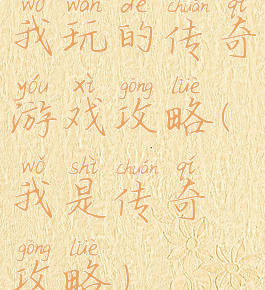 wǒ wán de chuán qí
我玩的传奇
yóu xì gōng lüè
游戏攻略(
wǒ shì chuán qí
我是传奇
gōng lüè
攻略)